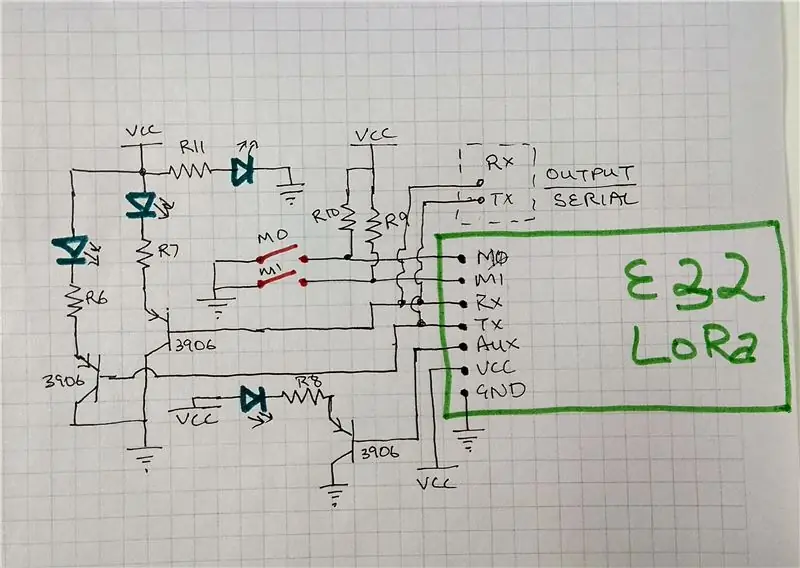 VCC
R11
VCC
RX
OUTPUT
SERIAL
TX
R10
R9
R7
M0
M1
M0
M1
RX
TX
AUX
VCC
GND
E32
LoRa
R6
3906
3906
R8
VCC
3906
VCC